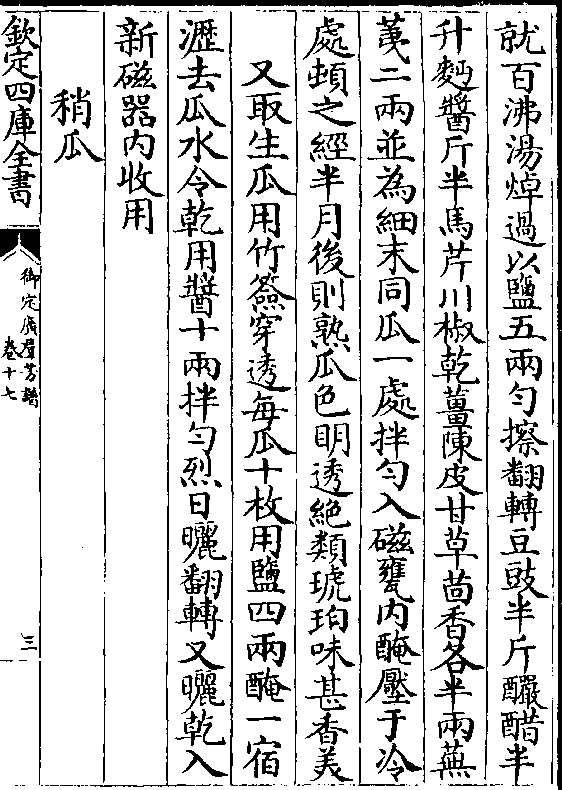 就百沸湯焯過以鹽五兩匀擦翻轉豆豉半斤釅醋半
升麪醬斤半馬芹川椒乾薑陳皮甘草茴香各半兩蕪
荑二兩並為細末同瓜一處拌匀入磁甕内醃壓于冷
處頓之經半月後則熟瓜色明透絶類琥珀味甚香美
又取生瓜用竹簽穿透每瓜十枚用鹽四兩醃一宿
瀝去瓜水令乾用醬十兩拌匀烈日曬翻轉又曬乾入
新磁器内收用
稍瓜
欽定四庫全書
御定廣羣芳譜
卷十七
三